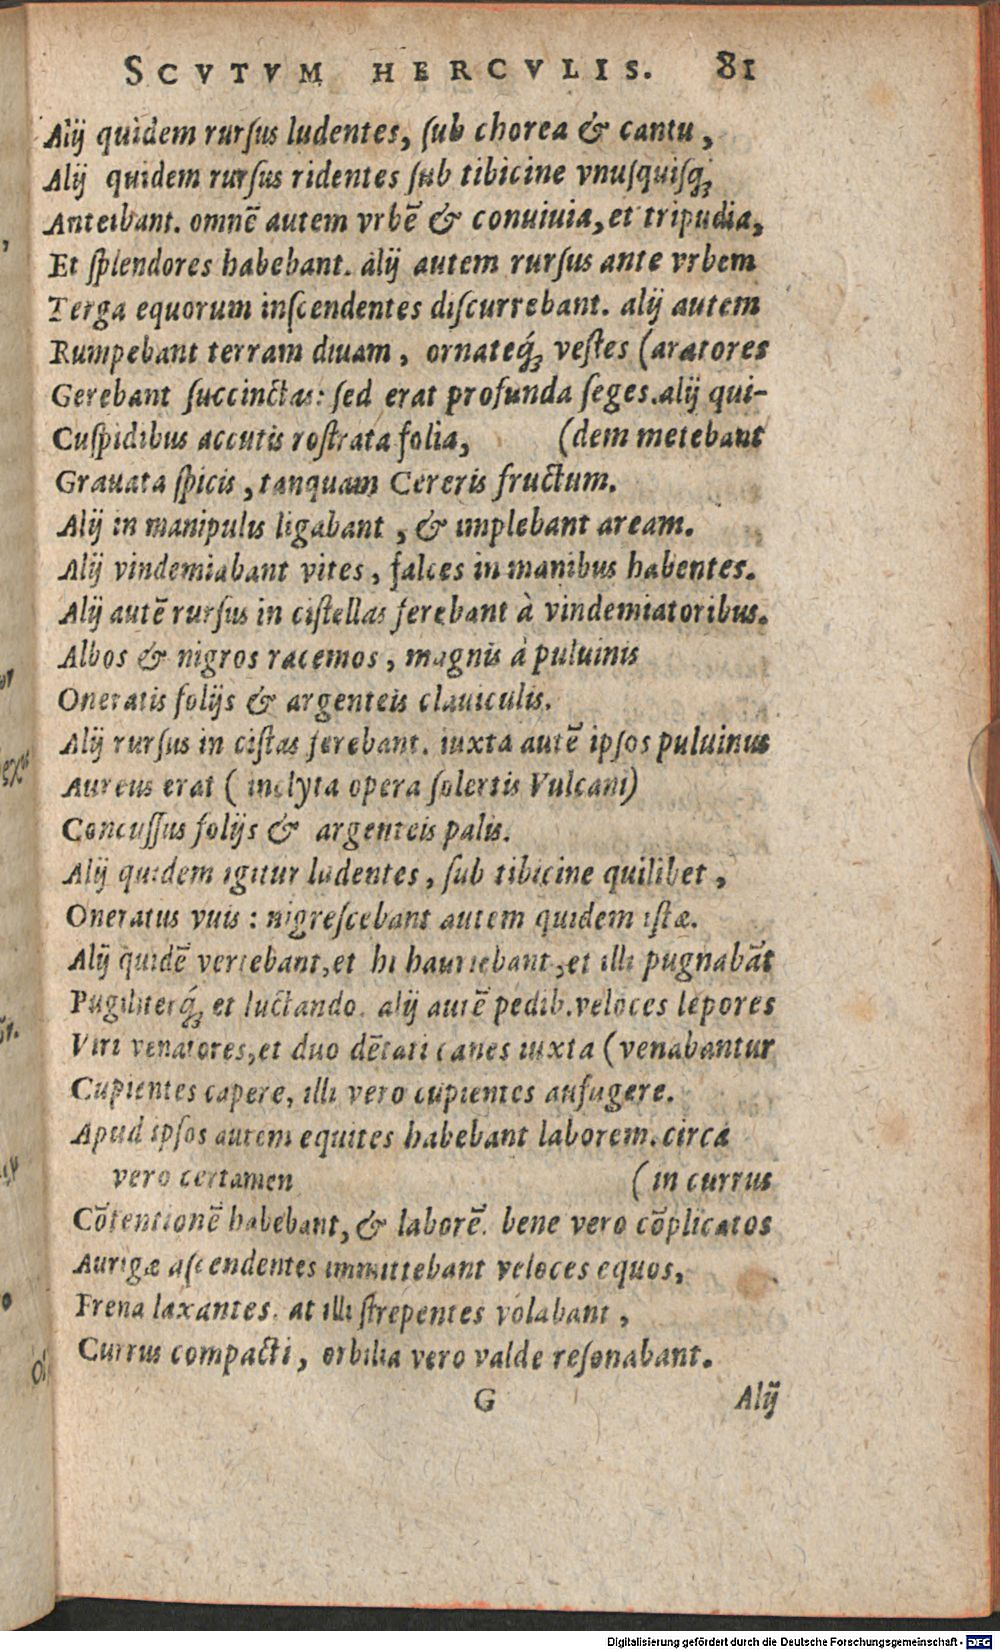 SCVTVM HERCVLIS. 81
Alij quidem rurſus ludentes, ſub chorea & cantu,
Alij quidem rurſus ridentes ſub tibicine vnuſquiſq;
Anteibant. omnē autem vrbē & conuiuia, et tripudia,
Et ſplendores habebant. alij autem rurſus ante vrbem
Terga equorum inſcendentes diſcurrebant. alij autem
Rumpebant terram diuam, ornateq́; veſtes (aratores
Gerebant ſuccinctas: ſed erat profunda ſeges. alij qui-
Cuſpidibus accutis roſtrata folia, (dem metebant
Grauata ſpicis, tanquam Cereris fructum.
Alij in manipulis ligabant, & implebant aream.
Alij vindemiabant vites, falces in manibus habentes.
Alij autē rurſus in ciſtellas ferebant à vindemiatoribus.
Albos & nigros racemos, magnis à puluinis
Oneratis folijs & argenteis clauiculis.
Alij rurſus in ciſtas ferebant. iuxta autē ipſos puluinus
Aureus erat ( inclyta opera ſolertis Vulcani)
Concuſſus folijs & argenteis palis.
Alij quidem igitur ludentes, ſub tibicine quilibet,
Oneratus vuis: nigreſcebant autem quidem iſtæ.
Alij quidē vertebant, et hi hauriebant, et illi pugnabāt
Pugiliterq́; et luctando. alij autē pedib. veloces lepores
Viri venatores, et duo dētati canes iuxta (venabantur
Cupientes capere, illi vero cupientes aufugere.
Apud ipſos autem equites habebant laborem. circa
vero certamen (in currus
Cōtentionē habebant, & laborē. bene vero cōplicatos
Aurigæ aſcendentes immittebant veloces equos,
Frena laxantes. at illi ſtrepentes volabant,
Currus compacti, orbilia vero valde reſonabant.
G Alij
Digitalisierung gefördert durch die Deutsche Forschungsgemeinschaft - DFG